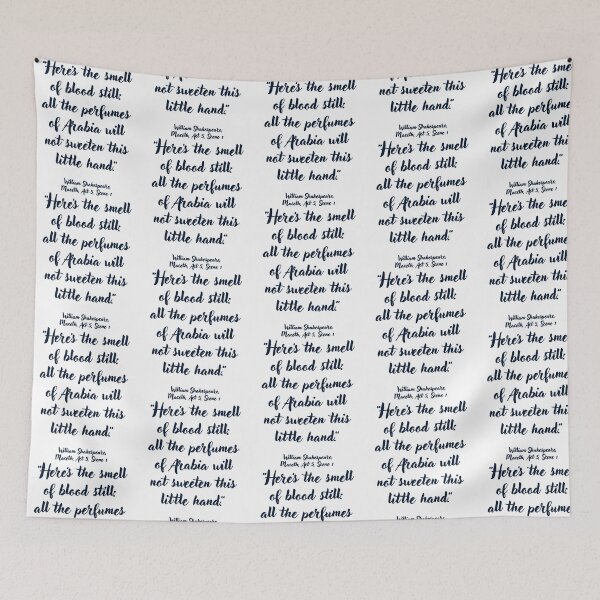 "Here's the smell
of blood still;
all the perfumes
of Arabia will
not sweeten this
little hand."
William Shakespeare,
Maceth, Act 5, Scene 1
"Here's the smell
of blood still;
all the perfumes
of Arabia will
not sweeten this
little hand."
William Shakespeare,
Maceth, Act 5, Scene 1
"Here's the smell
of blood still;
all the perfumes
of Arabia will
not sweeten this
little hand."
William Shakespeare,
Maceth, Act 5, Scene 1
"Here's the smell
of blood still;
all the perfumes
not sweeten this
little hand."
William Shakespeare,
Maceth, Act 5, Scene 1
"Here's the smell
of blood still;
all the perfumes
of Arabia will
not sweeten this
little hand."
William Shakespeare,
Maceth, Act 5, Scene 1
"Here's the smell
of blood still;
all the perfumes
of Arabia will
not sweeten this
little hand."
William Shakespeare,
Maceth, Act 5, Scene 1
"Here's the smell
of blood still;
all the perfumes
of Arabia will
not sweeten this
little hand."
William Shakespeare,
"Here's the smell
of blood still;
all the perfumes
of Arabia will
not sweeten this
little hand."
William Shakespeare,
Maceth, Act 5, Scene 1
"Here's the smell
of blood still;
all the perfumes
of Arabia will
not sweeten this
little hand."
William Shakespeare,
Maceth, Act 5, Scene 1
"Here's the smell
of blood still;
all the perfumes
of Arabia will
not sweeten this
little hand."
William Shakespeare,
Maceth, Act 5, Scene 1
"Here's the smell
of blood still;
all the perfumes
not sweeten this
little hand."
William Shakespeare,
Maceth, Act 5, Scene 1
"Here's the smell
of blood still;
all the perfumes
of Arabia will
not sweeten this
little hand."
William Shakespeare,
Maceth, Act 5, Scene 1
"Here's the smell
of blood still;
all the perfumes
of Arabia will
not sweeten this
little hand."
William Shakespeare,
Maceth, Act 5, Scene 1
"Here's the smell
of blood still;
all the perfumes
of Arabia will
not sweeten this
little hand."
William Shakespeare,
"Here's the smell
of blood still;
all the perfumes
of Arabia will
not sweeten this
little hand."
William Shakespeare,
Maceth, Act 5, Scene 1
"Here's the smell
of blood still;
all the perfumes
of Arabia will
not sweeten this
little hand."
William Shakespeare,
Maceth, Act 5, Scene 1
"Here's the smell
of blood still;
all the perfumes
of Arabia will
not sweeten this
little hand."
William Shakespeare,
Maceth, Act 5, Scene 1
"Here's the smell
of blood still;
all the perfumes